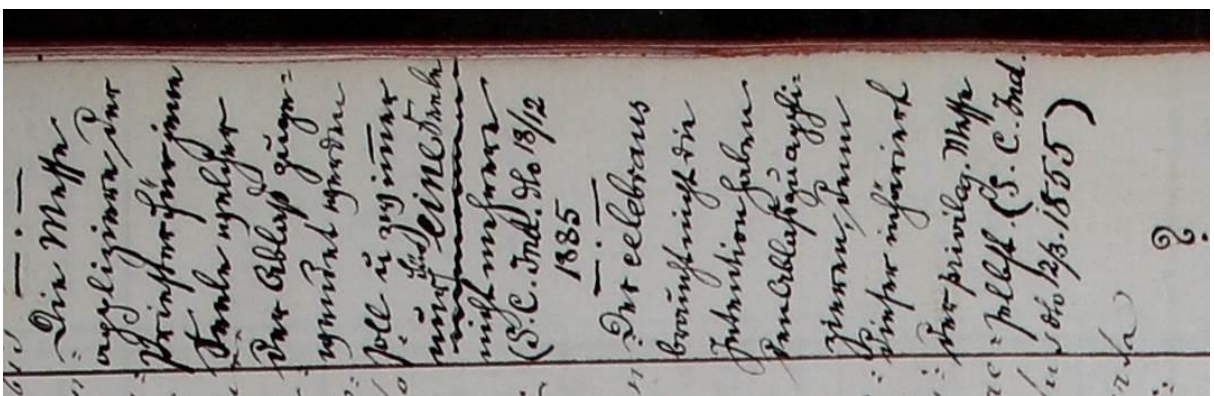 — . —
Die Messe
applizire der
Priester für jene
Seele welcher
der Ablass zuge=
wendet werden
soll u zwar immer
nur für eine Seele
nicht mehrere
(S. C. Ind. ddo 18/12
1885
— . —
Der celebrans
braucht nicht die
Intention haben
den Ablass zu appli=
ziren, denn
dieser inhäriert
der privileg. Messe
selbst. (S. C. Ind.
ddo 12/3. 1855)
?